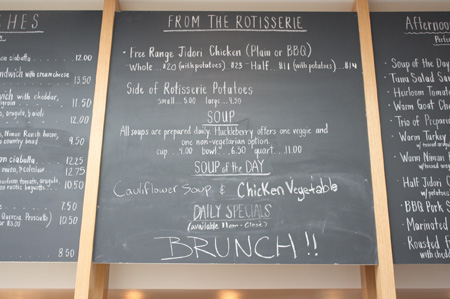 CHES
ciabatta ... 12.00
andwich with cream cheese
13.50
with cheddar,
10.50
9.50
ciabatta... 12.25
12.75
10.50
8.50
FROM THE ROTISSERIE
· Free Range Jidori Chicken (Plain or BBQ)
(with potatoes) $23 - Half... (with potatoes)... $14
Side of Rotisserie Potatoes
small... 5.00 large...
SOUP
All soups are prepared daily. Huckleberry offers one veggie and
one non-vegetarian option.
cup... 4.00 bowl... 6.50 quart... 11.00
SOUP of the DAY
Cauliflower Soup & Chicken Vegetable
DAILY SPECIALS
(available 11am - Close)
BRUNCH!!
Afternoo
Soup of the Day
Tuna Salad San
Heirloom Tomato
Warm Goat Chee
Trio of Prepare
Warm Turkey
Warm Niman
Half Jidori C
w/potatoes
BBQ Pork S
Marinated
Roasted